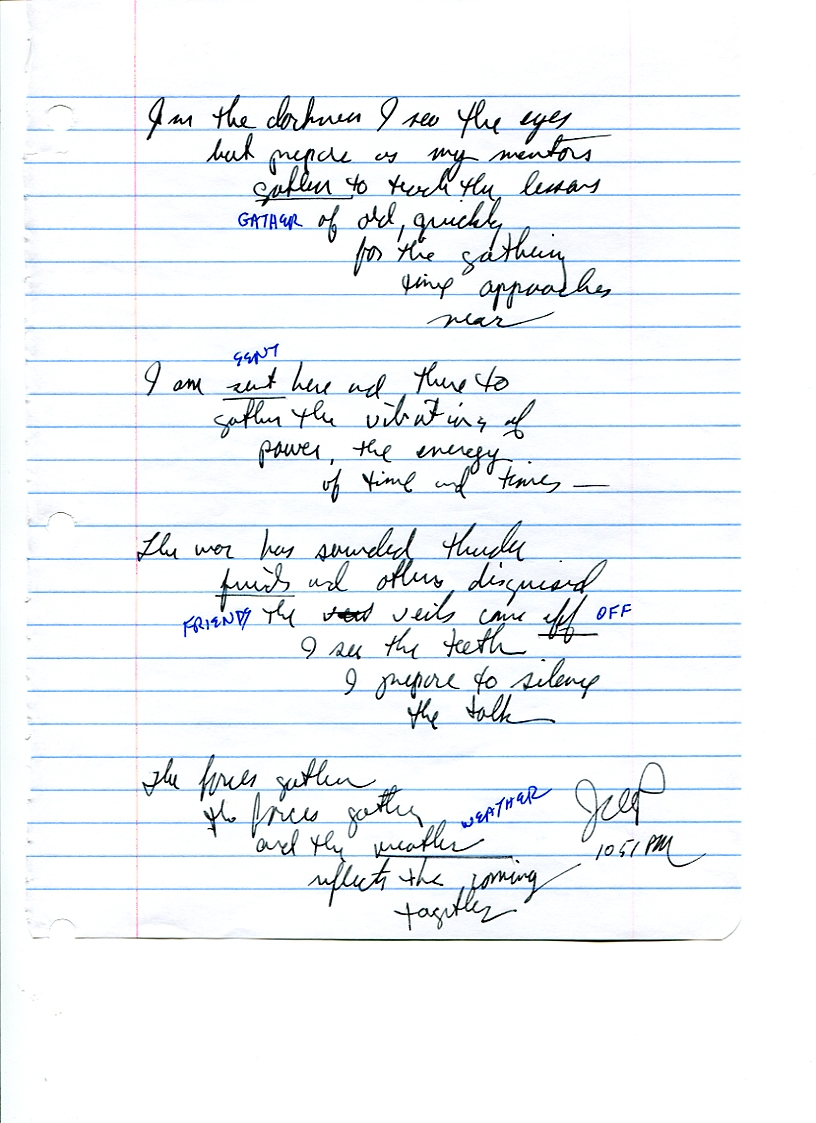 In the darkness I see the eyes
but prepare as my mentors
gather to teach the lessons
GATHER of old, quickly
for the gathering
time approaches
near
SENT
I am sent here and there to
gather the vibrating of
power, the energy
of time and times —
The war has sounded thunder
friends and others disguised
FRIENDS the veils come off OFF
I see the teeth
I prepare to silence
the talk
The forces gather
the forces gather WEATHER
and the weather
10 51 PM
reflects the coming
together